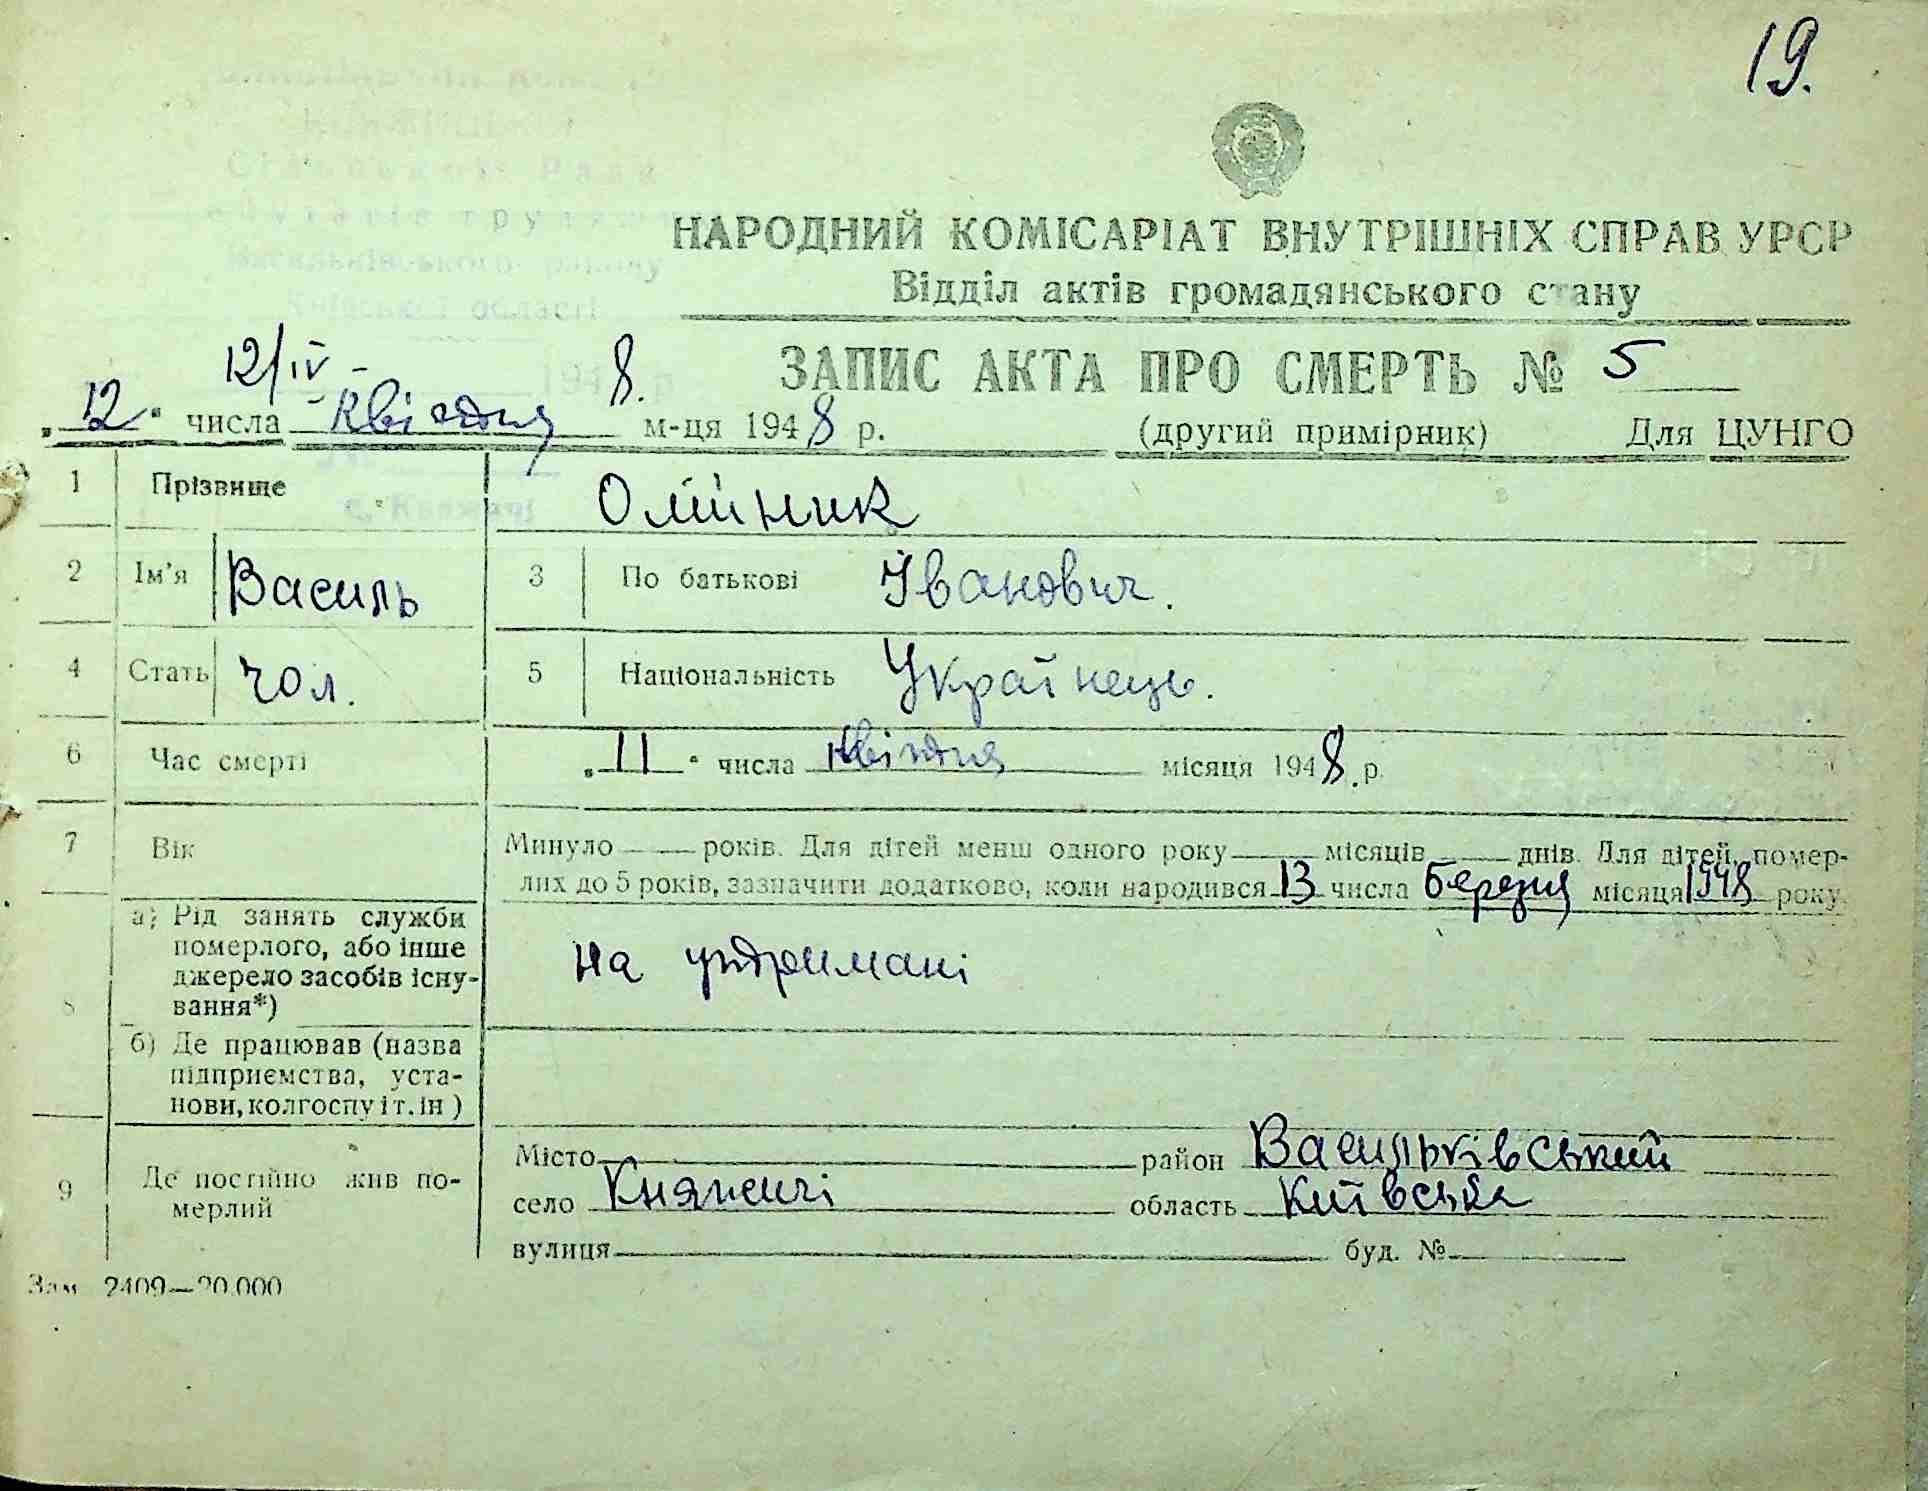 19.
НАРОДНИЙ КОМІСАРІАТ ВНУТРІШНІХ СПРАВ УРСР
Відділ актів громадянського стану
Сільської Ради
Васильківського району
Київської області
194 р
12/IV - 8.
ЗАПИС АКТА ПРО СМЕРТЬ № 5
„12" числа Квітня м-ця 1948 р. (другий примірник) Для ЦУНГО
1 Прізвище Олійник
2 Ім'я Василь 3 По батькові Іванович.
4 Стать чол. 5 Національність Українець.
6 Час смерті „11" числа квітня місяця 1948 р.
7 Вік Минуло — років. Для дітей менш одного року — місяців — днів. Для дітей, помер-
лих до 5 років, зазначити додатково, коли народився 13 числа березня місяця 1948 року.
8 а) Рід занять служби
померлого, або інше
джерело засобів існу-
вання*) на удримані
б) Де працював (назва
підприємства, уста-
нови, колгоспу і т. ін.)
9 Де постійно жив по-
мерлий
Місто район Васильківський
село Княжичі область Київська
вулиця буд. №
Зам 2409—20.000